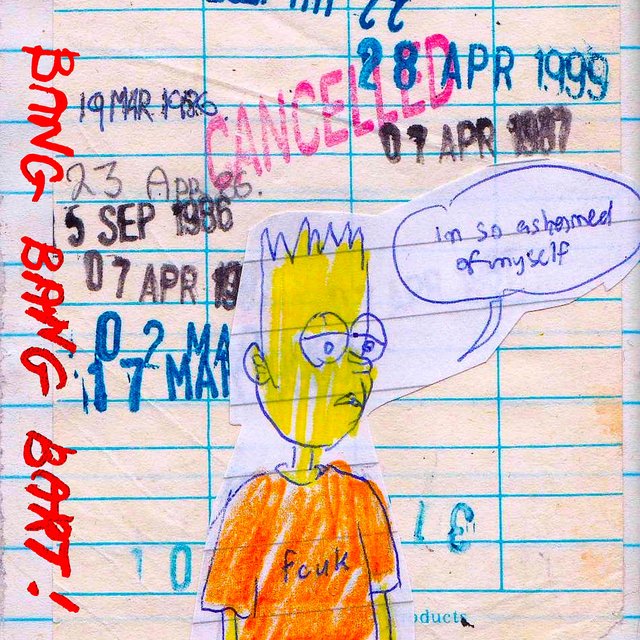 22
28 APR 1999
19 MAR 1986.
CANCELLED
07 APR 1987
23 Apr 86.
5 SEP 1986
07 APR 19
02 MA
17 MA
im so ashamed
of myself
BANG BANG BART!
fcuk
10
oducts